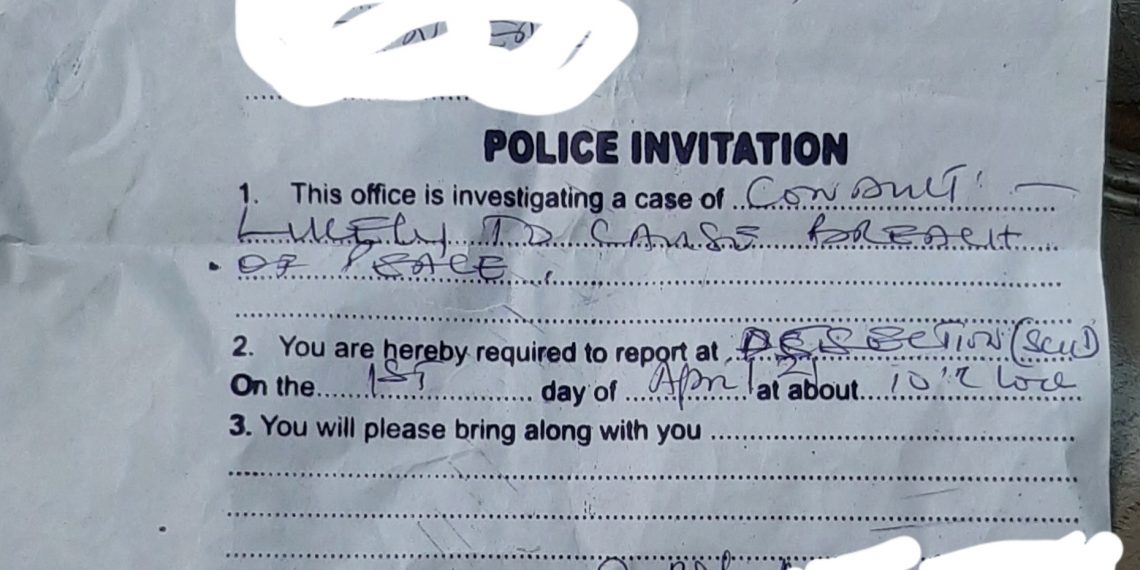 POLICE INVITATION
1. This office is investigating a case of CONDUCT
LIKELY TO CAUSE BREACH
OF PEACE.
2. You are hereby required to report at SECTION
On the 1ST day of April 21 at about 10'
3. You will please bring along with you